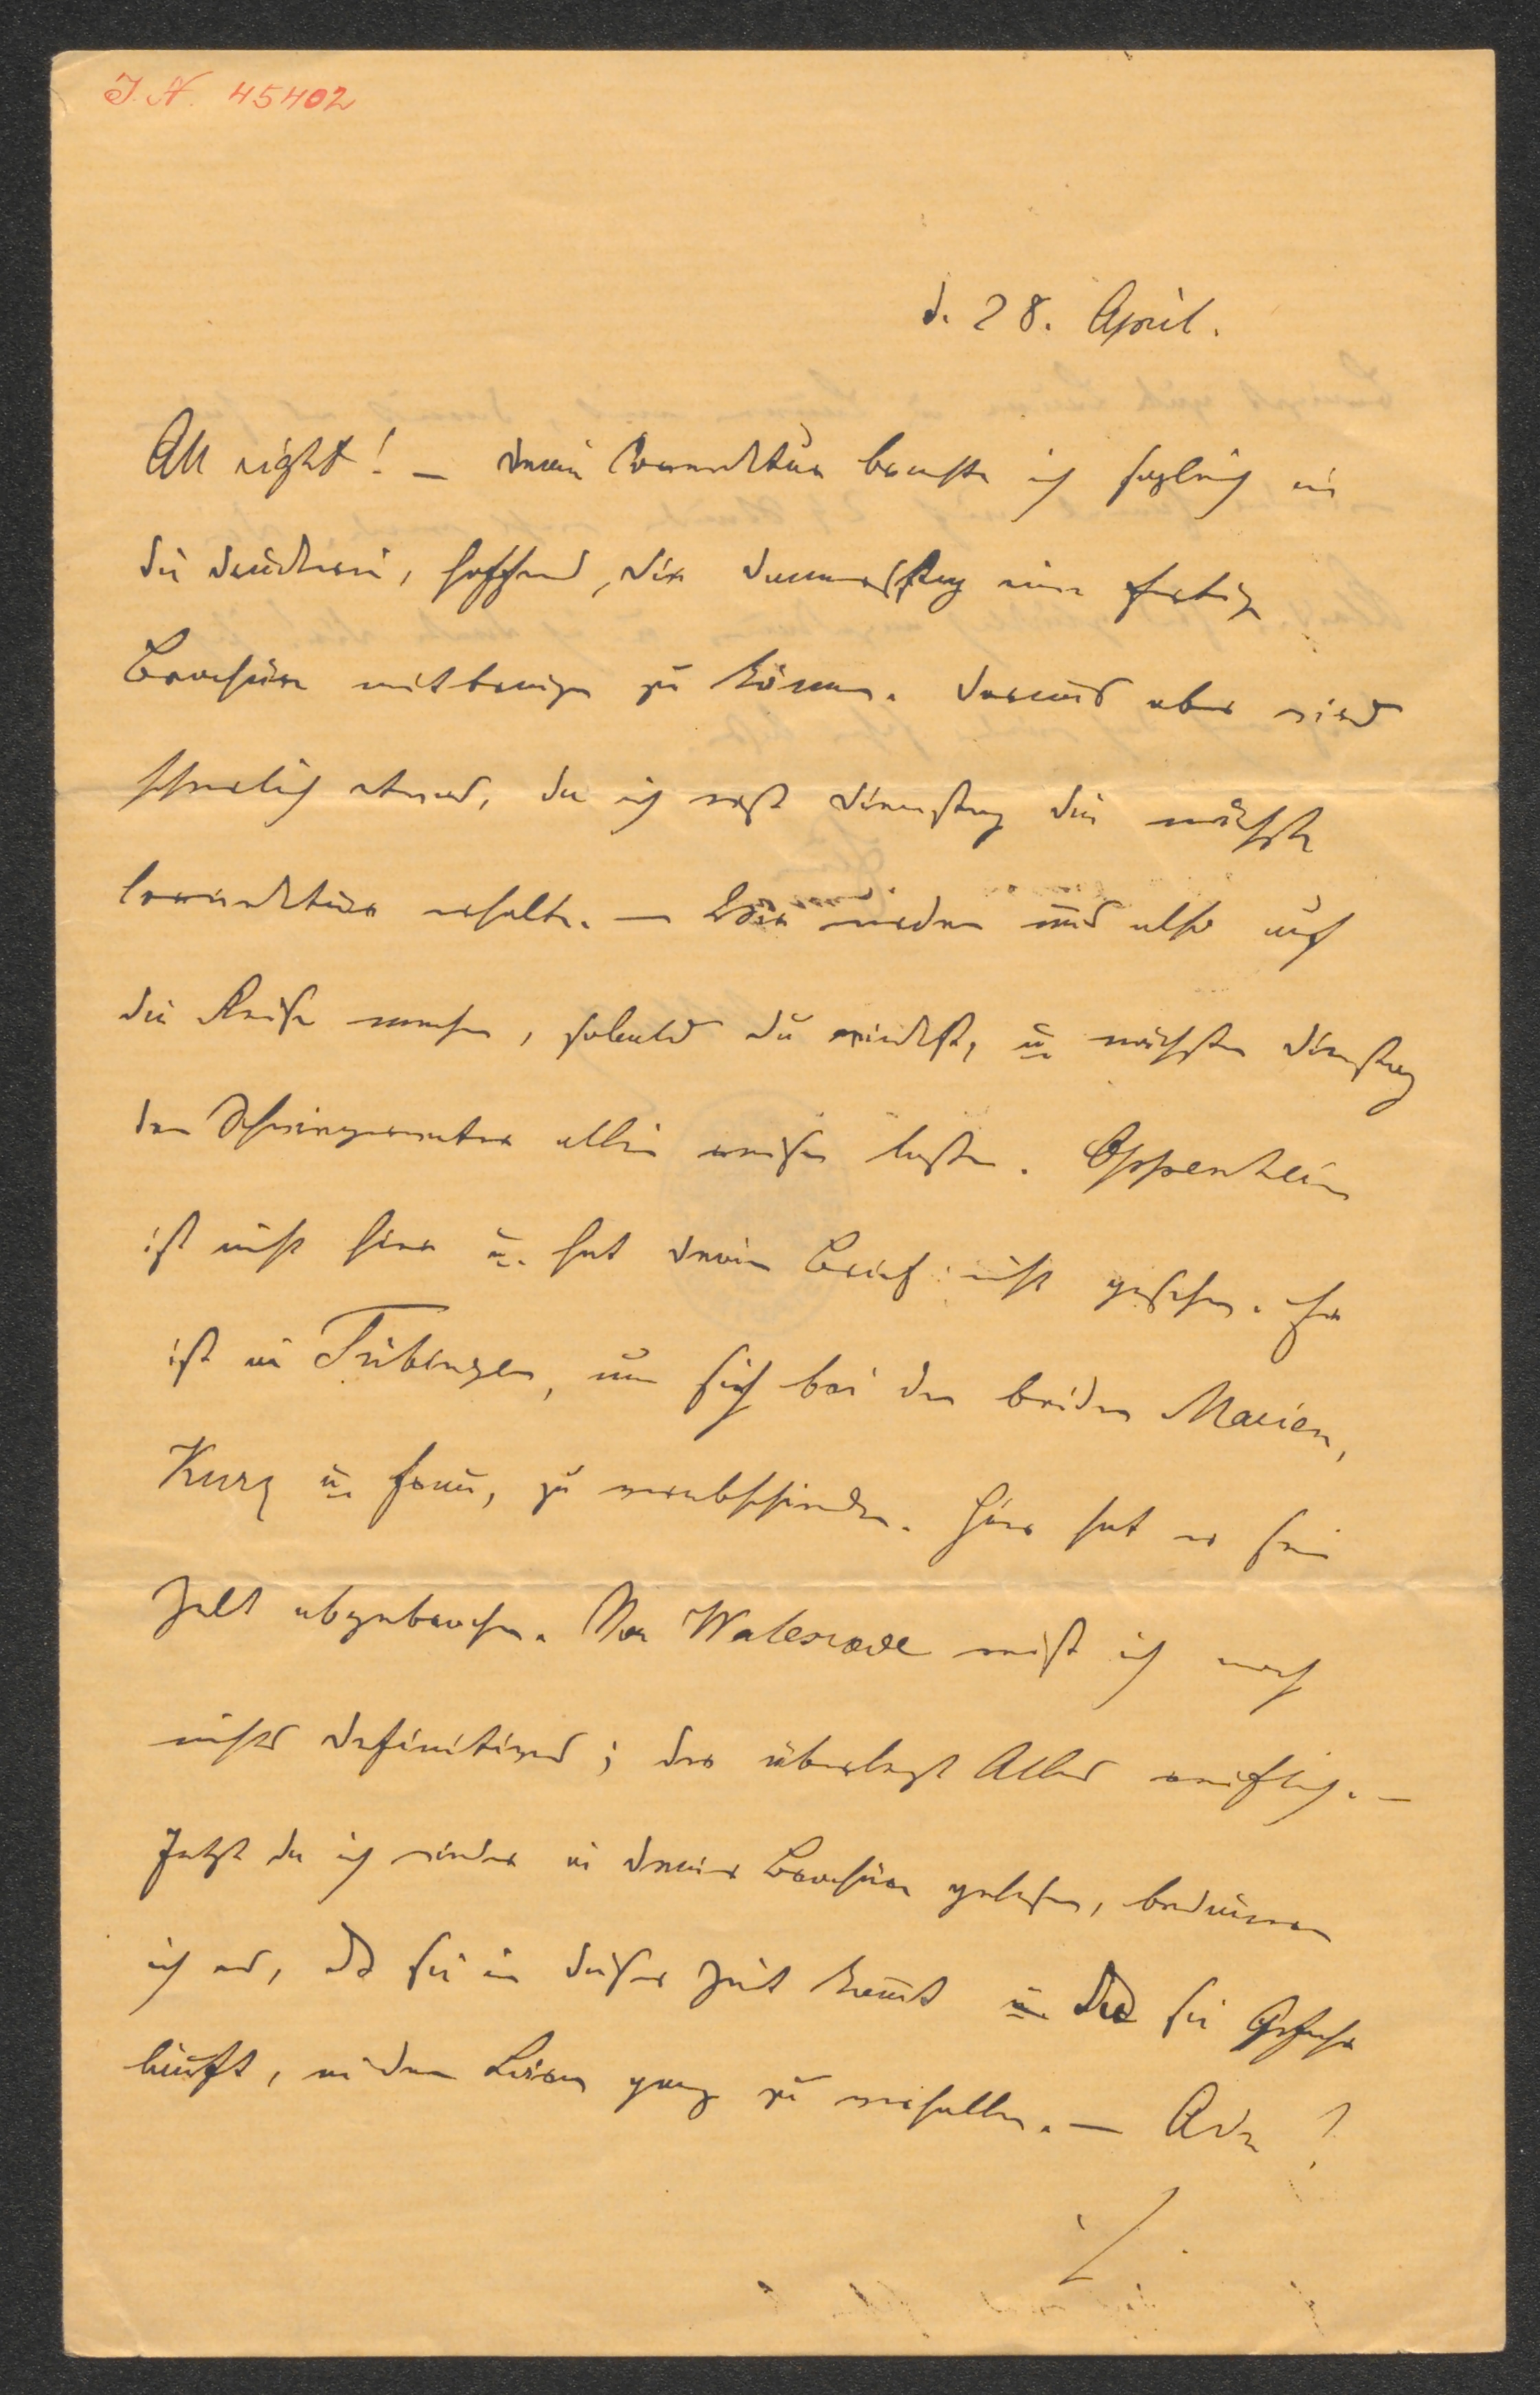 J. N. 45402
d. 28. April.
All right! – Deine Correctur brachte ich sogleich in
die Druckerei, hoffend, Dir Donnerstag eine fertige
Brochüre mitbringen zu können. Daraus aber wird
schwerlich etwas, da ich erst Dienstag die nächste
Correctur erhalte. – Wir werden uns also auf
die Reise machen, sobald Du winkst, u. nächsten Dienstag
den allein reisen lassen. Oppenheim
ist nicht hier u. hat Deinen Brief nicht gesehen. Er
ist in Tübingen, um sich bei den beiden Marien,
Kurz u. Frau, zu verabschieden. Hier hat er sein
Zelt abgebrochen. Von Walesrode weiß ich noch
nichts Definitives; der überlegt Alles reiflich. –
Jetzt da ich wieder in Deiner Brochüre gelesen, bedauere
ich es, daß sie in dieser Zeit kommt u. daß sie Gefahr
läuft, in dem Lärm ganz zu verhallen. – Ade!
L.